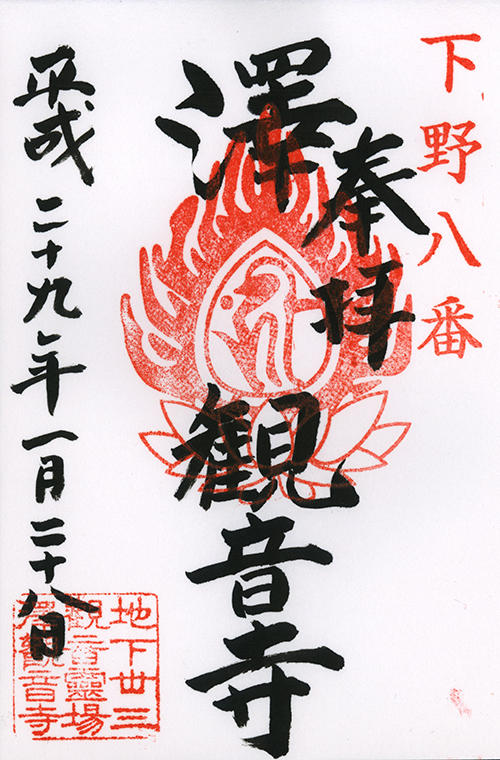 下野八番
奉拝
澤観音寺
平成二十九年一月二十八日
地下丗三
観音靈場
澤觀音寺